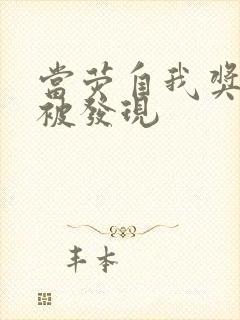 當荧自我獎
被發現
丰本